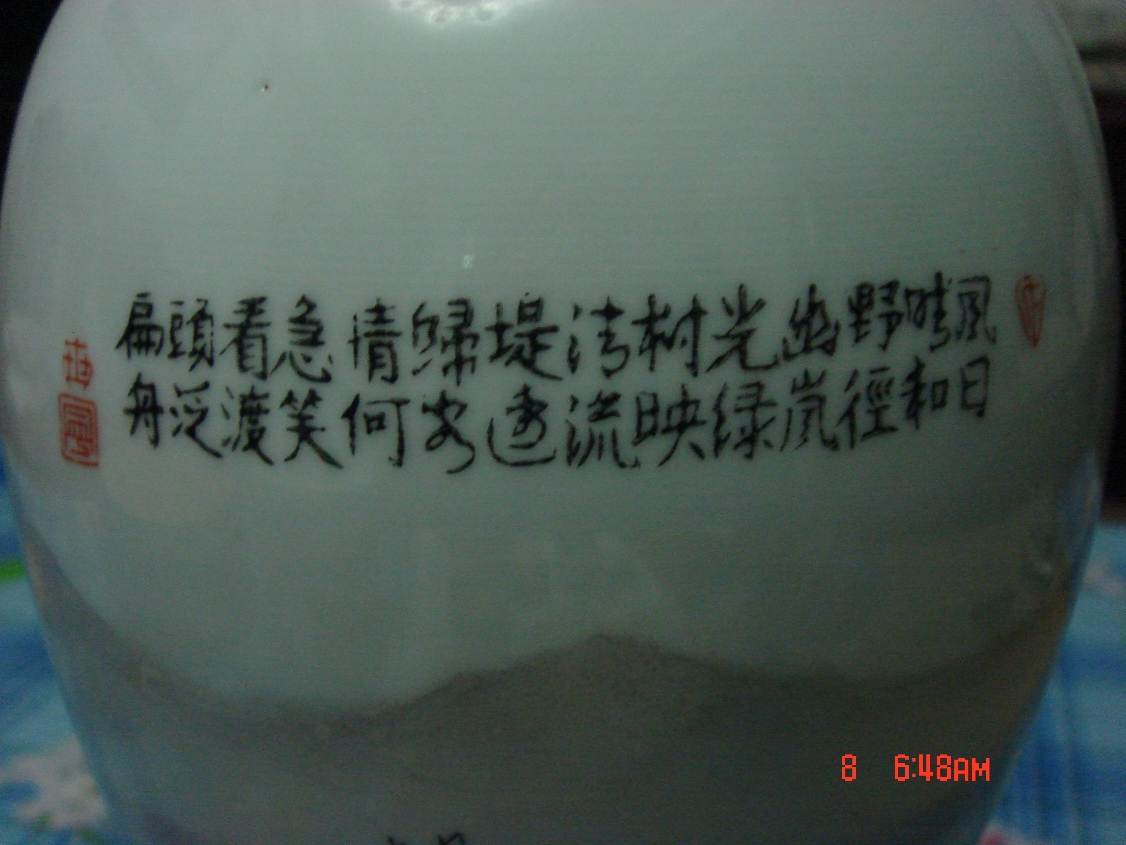 風日
晴和
野徑
幽嵐
光绿
村映
清流
堤邊
歸客
情何
急笑
看渡
頭泛
扁舟
8 6:48AM